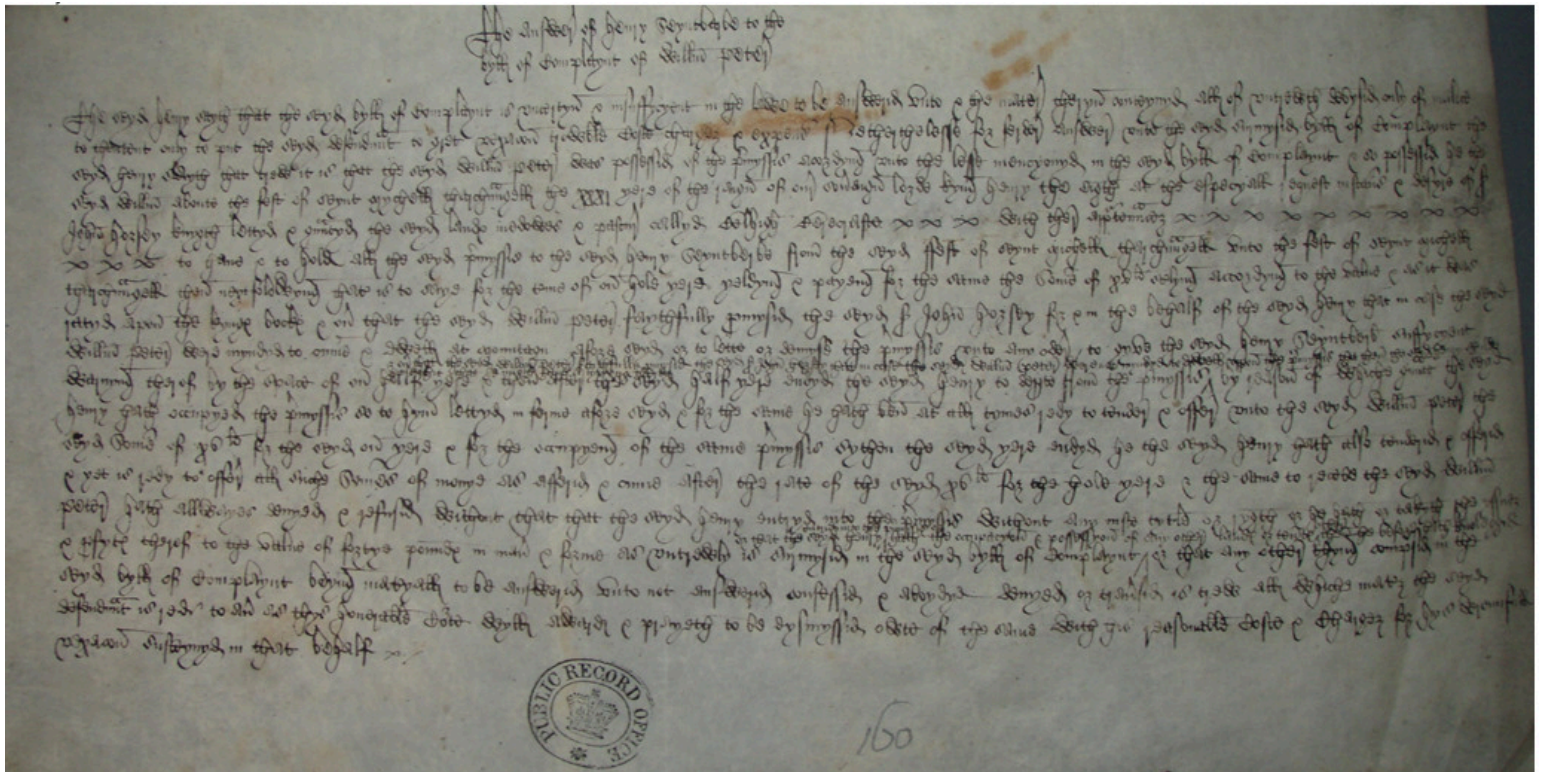 The answer of henry Seyntberbe to the
byll of Complaynt of Willm Peter
The seyd henry seyth that the seyd byll of Complaynt is uncerteyn & insuffycyent in the lawe to be answerid unto & the mater therynn conteynyd all of untrewth devysid only of malice
to thentent only to put the seyd defendnt to gret vexacon trowble Coste chargez & expens Netherthelesse for ferder answer unto the seyd surmysid byll of Complaynt the
seyd henry seyth that trewe it is that the seyd Willm Peter was possessid of the pmyssis accordyng unto the lesse mencyonyd in the seyd byll of Complaynt & so possessid he the
seyd Willm aboute the fest of seynt mychell tharchangell the XXXI yere of the reign of our sovereign lorde kyng henry the eight at the especyall request instans & desyre of S
John horsey knyght lettyd & grauntyd the seyd landz medowes & pastur callyd x x x with ther apptenancez x x x x x x x x x
x x x to have & to hold all the seyd pmyssis to the seyd henry Seyntberbe from the seyd ffest of seynt michell tharchangell unto the fest of seynt michell
tharchangell then next folowyng that is to saye for the terme of on hole yere yeldyng & payeng for the same the some of xv li only accordyng to the value & as it was
ratyd apon the kyngz bookz & on that the seyd Willm Peter faythfully promysid the seyd S John horsey for & in the behalf of the seyd henry that in case the seyd
Willm Peter were myndyd to come & dwell at afore seyd or to lette or demyse the pmyssis unto any oder to gyve the seyd henry Seyntberb suffycyent
warnyng therof by the space of on half yere & then after the seyd half yere endyd the seyd henry to depte from the pmyssis by reason of whiche the seyd
henry hath occupyed the pmyssis so to hym lettyd in forme afore seyd & for the same he hath ben at all tymes redy to tender & offer unto the seyd Willm Peter the
seyd some of xv li for the seyd on yere & for the occupyeng of the same pmyssis sythen the seyd yere endyd he the seyd henry hath also tenderid & offerid
& yet is redy to offer all suche somes of monye as afferith & come after the rate of the seyd xv li for the hole yere & the same to receve the seyd Willm
Peter hath allwayes denyed & refusid Without that that the seyd henry entryd into the pmyssis without any iuste tytle or ryght or he hath or takith the issuez
& pfytz therof to the value of fortye poundz in maner & forme as untrewly is surmysid in the seyd byll of Complaynt or that any other thyng comprisid in the
seyd byll of Complaynt beyng materyall to be answerid unto not answerid confessid & avoydyd denyed or traversid is trewe all whiche materz the seyd
defendnt is redy to as thys honorable Cort wyll award & prayeth to be dysmyssid owte of the same with his resonable Costz & Chargez for hys wrongfull
vexacon susteynyd in that behalf
PUBLIC RECORD OFFICE
160